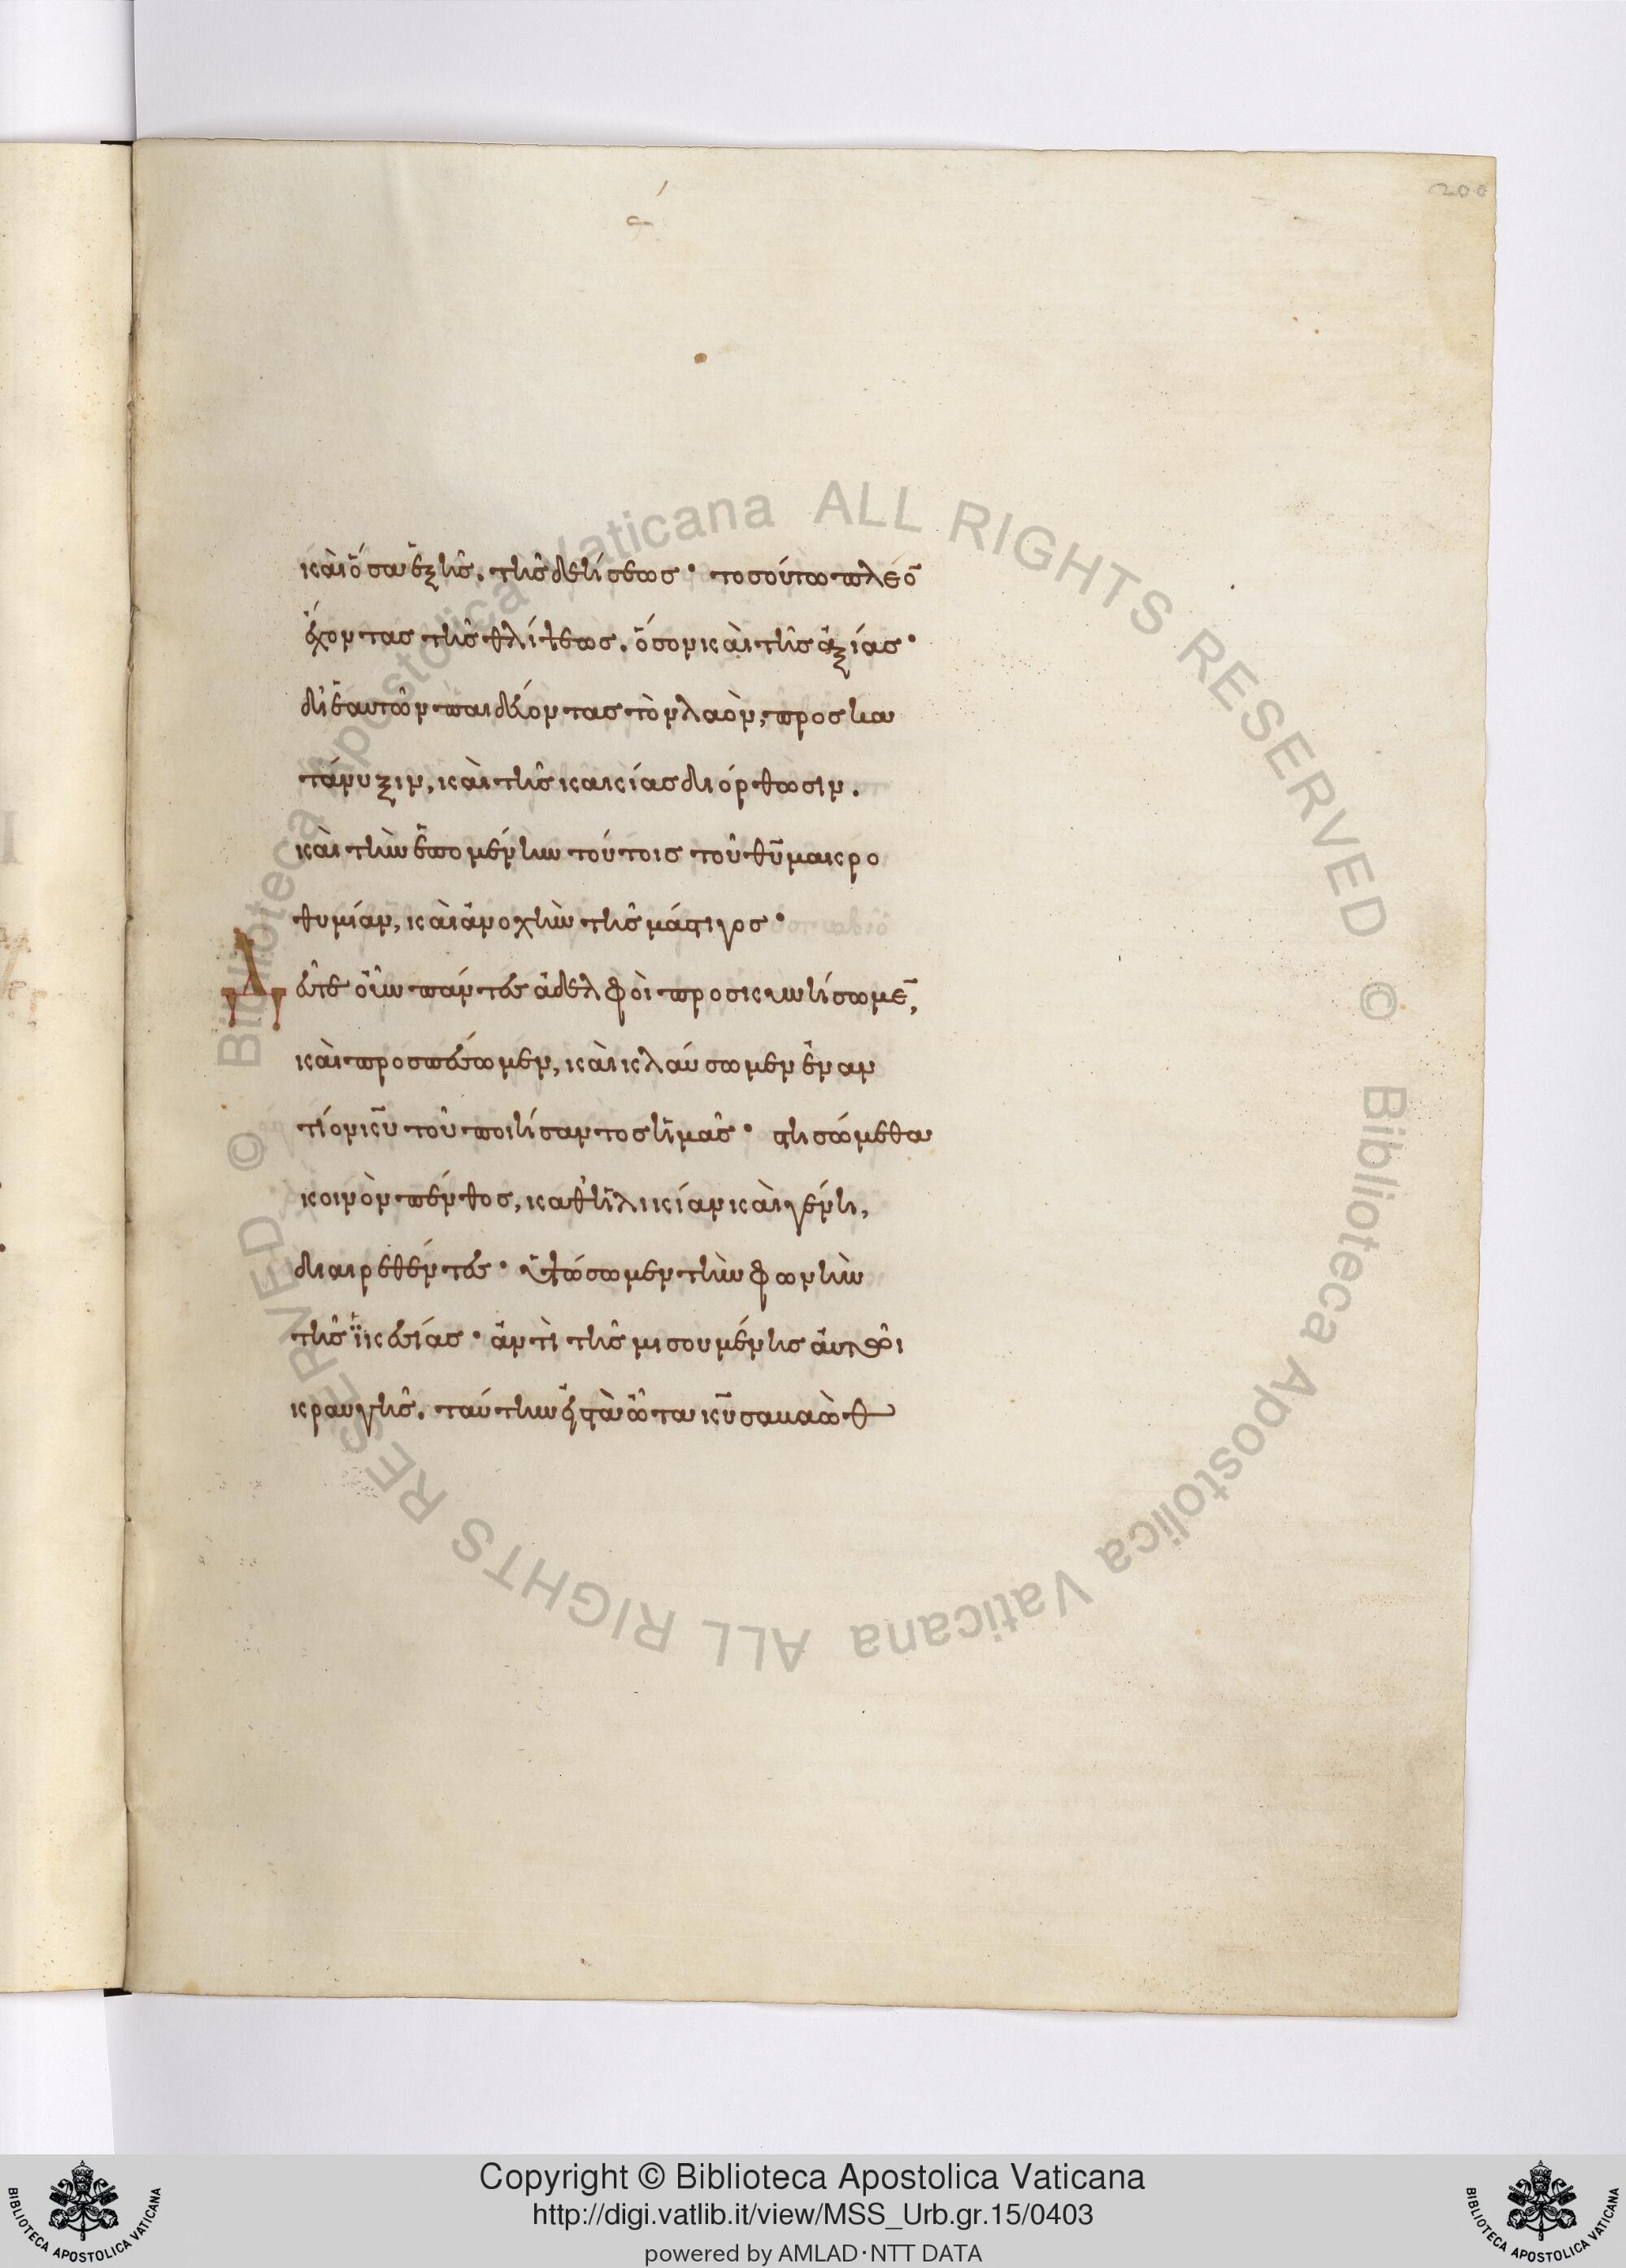 200
ϛ´
καὶ ὅσα ἑξῆς. τῆς δεήσεως· τοσούτω πλέο̄
ἔχοντας τῆς θλίψεως. ὅσον καὶ τῆς ἀξίας·
δι' ἑαυτῶν παιδεύοντας τὸν λαὸν, πρὸς κα
τάνυξιν, καὶ τῆς κακίας διόρθωσιν.
καὶ τὴν ἑπομένην τούτοις τοῦ θῡ μακρο
θυμίαν, καὶ ἀνοχὴν τῆς μάστιγος·
Δεῦτε οὖν πάντες ἀδελφοὶ προσκυνήσωμε̄,
καὶ προσπέσωμεν, καὶ κλαύσωμεν ἐναν
τίον κ̄ῡ τοῦ ποιήσαντος ἡμᾶς· στησώμεθα
κοινὸν πένθος, καθ' ἡλικίαν καὶ γένη,
διαιρεθέντες· ὑψώσωμεν τὴν φωνὴν
τῆς ἱκεσίας· ἀντὶ τῆς μισουμένης αὐτῶι
κραυγῆς. ταύτην εἰς τὰ ὦτα κ̄ῡ σαβαὼθ
Biblioteca Apostolica Vaticana ALL RIGHTS RESERVED ©
Biblioteca Apostolica Vaticana ALL RIGHTS RESERVED ©
Copyright © Biblioteca Apostolica Vaticana
http://digi.vatlib.it/view/MSS_Urb.gr.15/0403
powered by AMLAD·NTT DATA
BIBLIOTECA APOSTOLICA VATICANA
BIBLIOTECA APOSTOLICA VATICANA